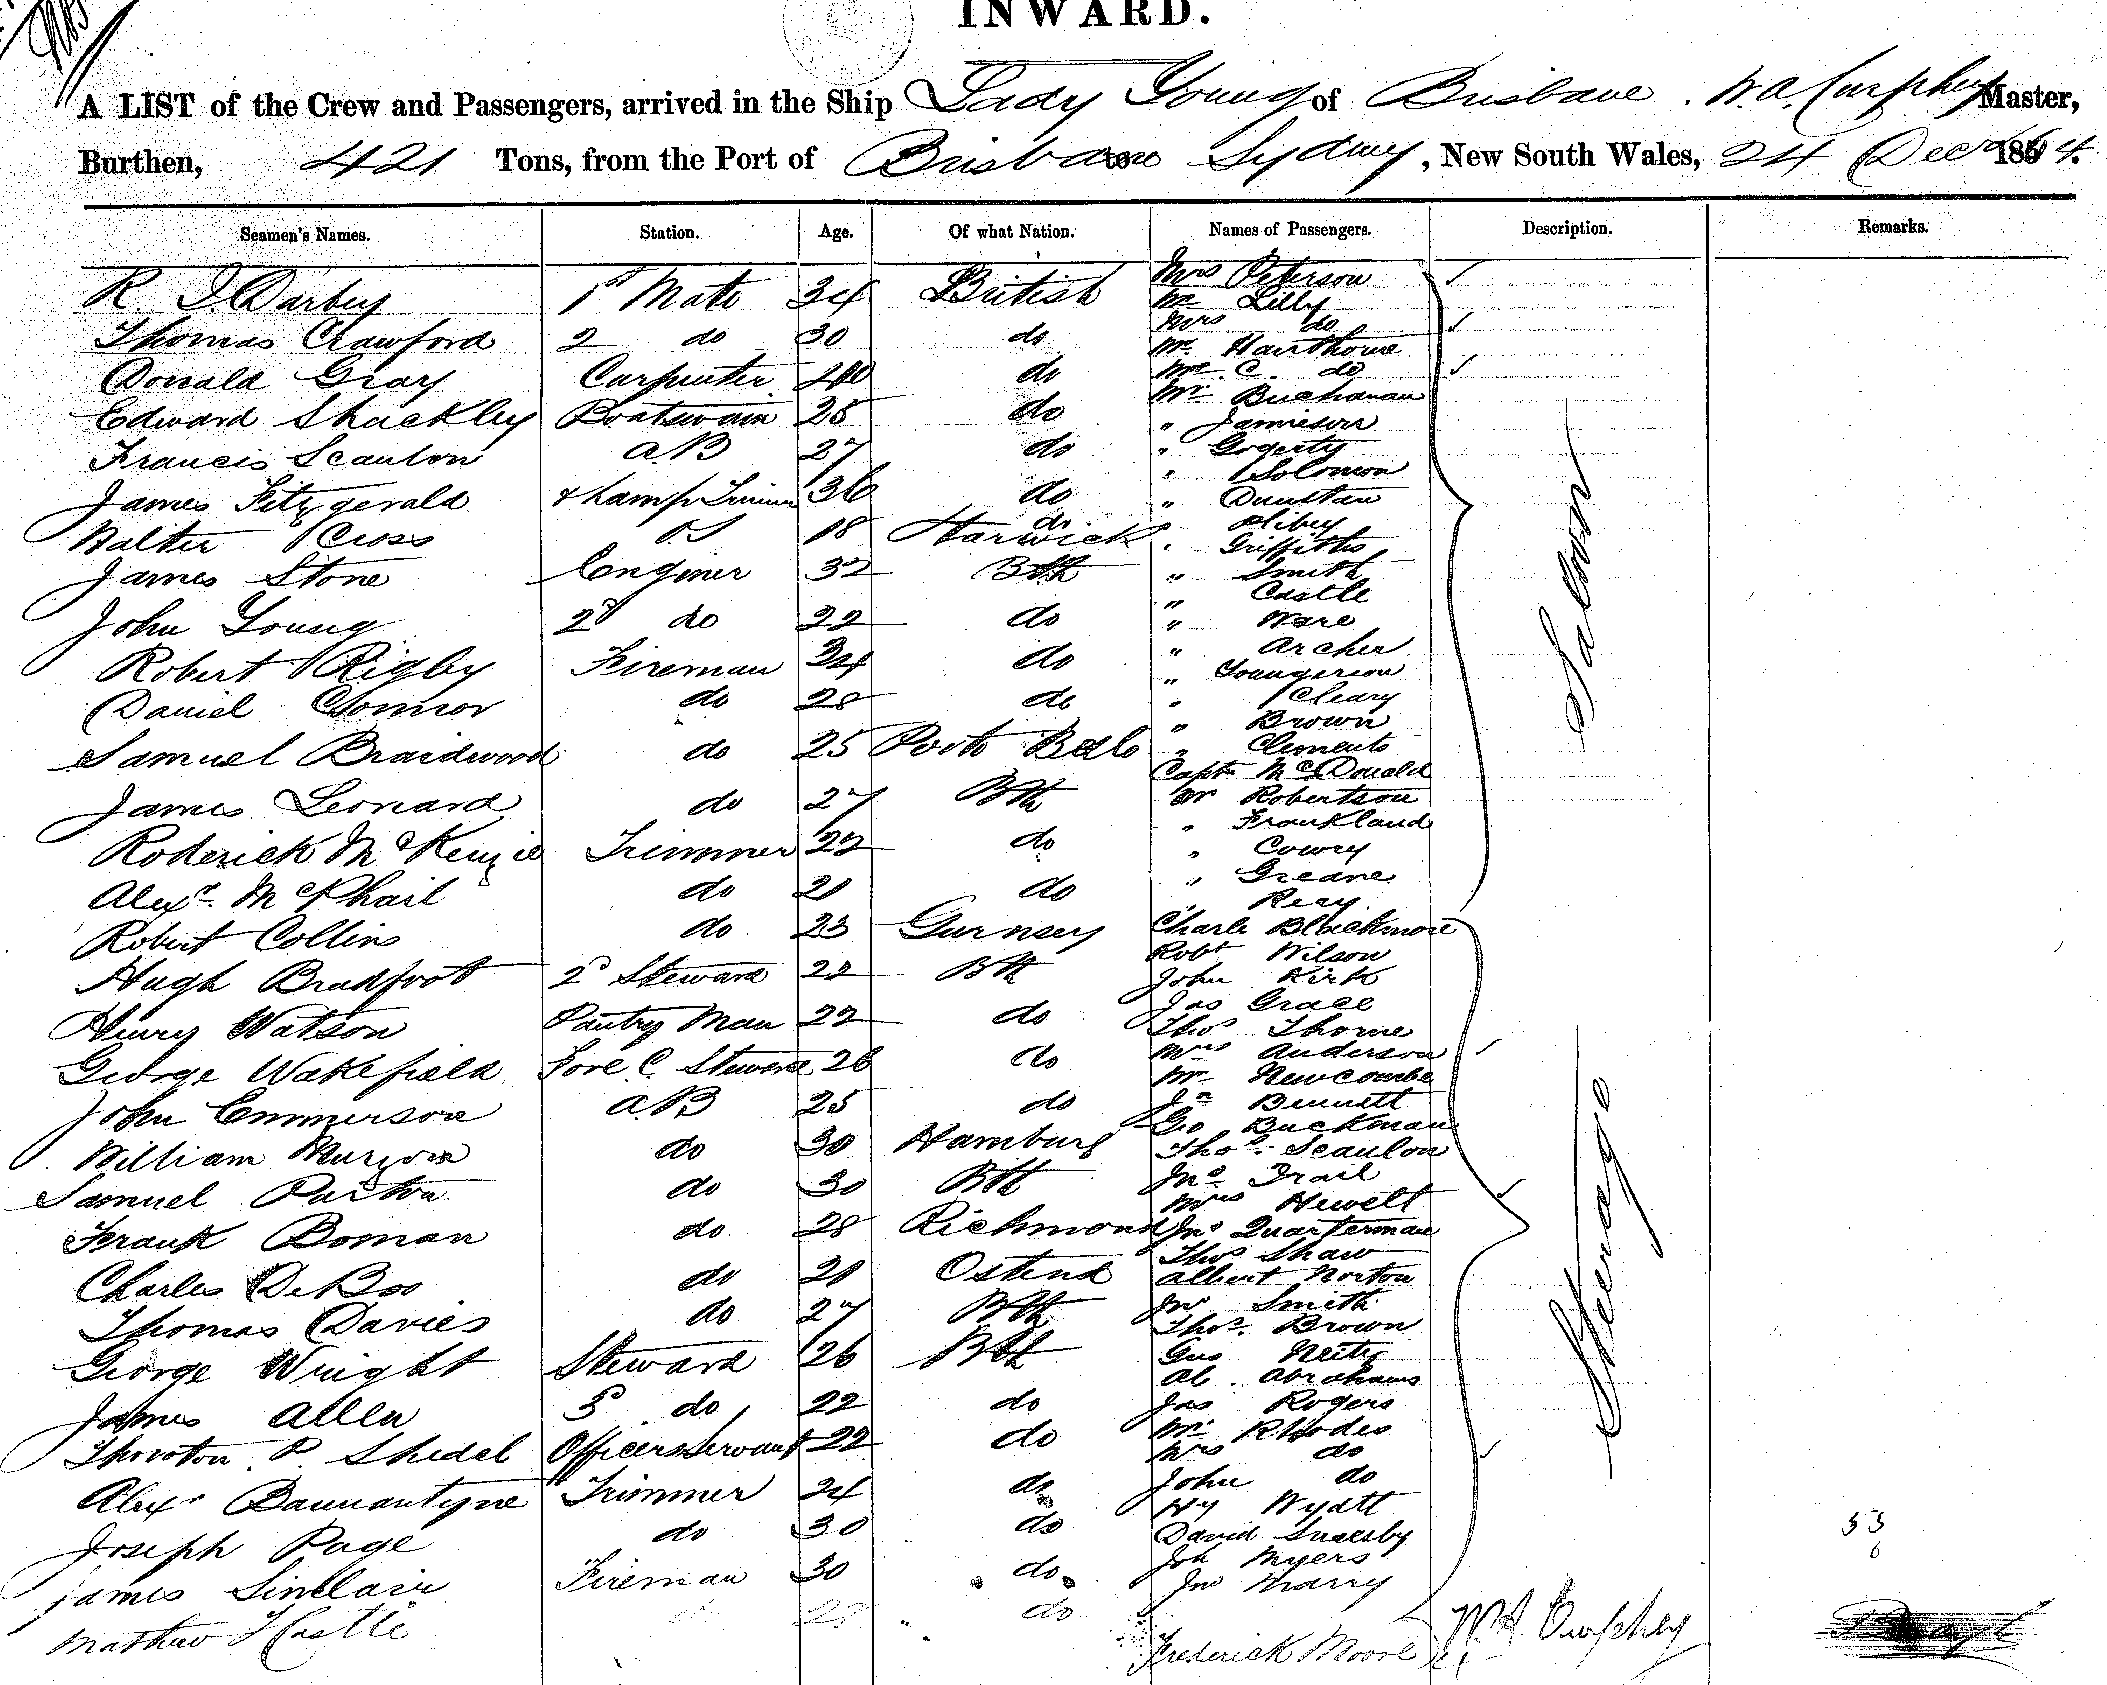 INWARD.
A LIST of the Crew and Passengers, arrived in the Ship Lady Young of Brisbane . W. A. Curphey Master,
Burthen, 421 Tons, from the Port of Brisbane to Sydney, New South Wales, 24 Decr 1864.
Seamen's Names. Station. Age. Of what Nation. Names of Passengers. Description. Remarks.
R I Darbey 1st Mate 34 British
Thomas Crawford 2 do 30 do
Donald Gray Carpenter 40 do
Edward Shackley Boatswain 25 do
Francis Scanlon A.B 27 do
James Fitzgerald & Lamp Trimmer 36 do
Walter Cross OS 18 do Harwick
James Stone Enginer 32 Bth
John Young 2d do 22 do
Robert Rigby Fireman 34 do
Daniel Connor do 28 do
Samuel Braidwood do 25 Porto Bello
James Leonard do 27 Bth
Roderick McKenzie Trimmer 22 do
Alexr McPhail do 21 do
Robert Collins do 23 Gurnsey
Hugh Bradfoot 2d Steward 22 Bth
Henry Watson Pantry Man 22 do
George Wakefield Fore C. Steward 26 do
John Emmerson A.B 25 do
William do 30 Hamburg
Samuel Parton do 30 Bth
Frank Boman do 28 Richmond
Charles De Boo do 21 Ostend
Thomas Davies do 27 Bth
George Wright Steward 26 Bth
James Allen 3d do 22 do
Thornton P. Shedel Officers servant 22 do
Alexr Bannantyne Trimmer 24 do
Joseph Page do 30 do
James Sinclair Fireman 30 do
Mathew Castle do
Mrs Peterson
Mr Lilly
Mrs do
Mr Hawthorne
Mr C. do
Mr Buchanan
" Jamieson
" Gogerty
" Solomon
" Dunstan
" Plibey
" Griffiths
" Smith
" Castle
" Ware
" Archer
" Youngerson
" Cleary
" Brown
" Clements
Capt McDonald
Mr Robertson
" Frankland
" Cowry
" Greane
" Reay
Saloon
Charle Blackmore
Robt Wilson
John Kirk
Jas Grace
Thos Thorne
Mrs Anderson
Mr Newcombe
Jn Bennett
Geo Buckman
Thos Scanlon
Jno Trail
Mrs Hewett
Jno Quarterman
Thos Shaw
Albert Norton
Jno Smith
Thos Brown
Gus Neitz
Ab. Abrahams
Jas Rogers
Mr Rhodes
Mrs do
John do
Hy Wyatt
David Snaesby
Joh Myers
Jno Marry
Frederick Moore
Steerage
W A Curphey
53
6